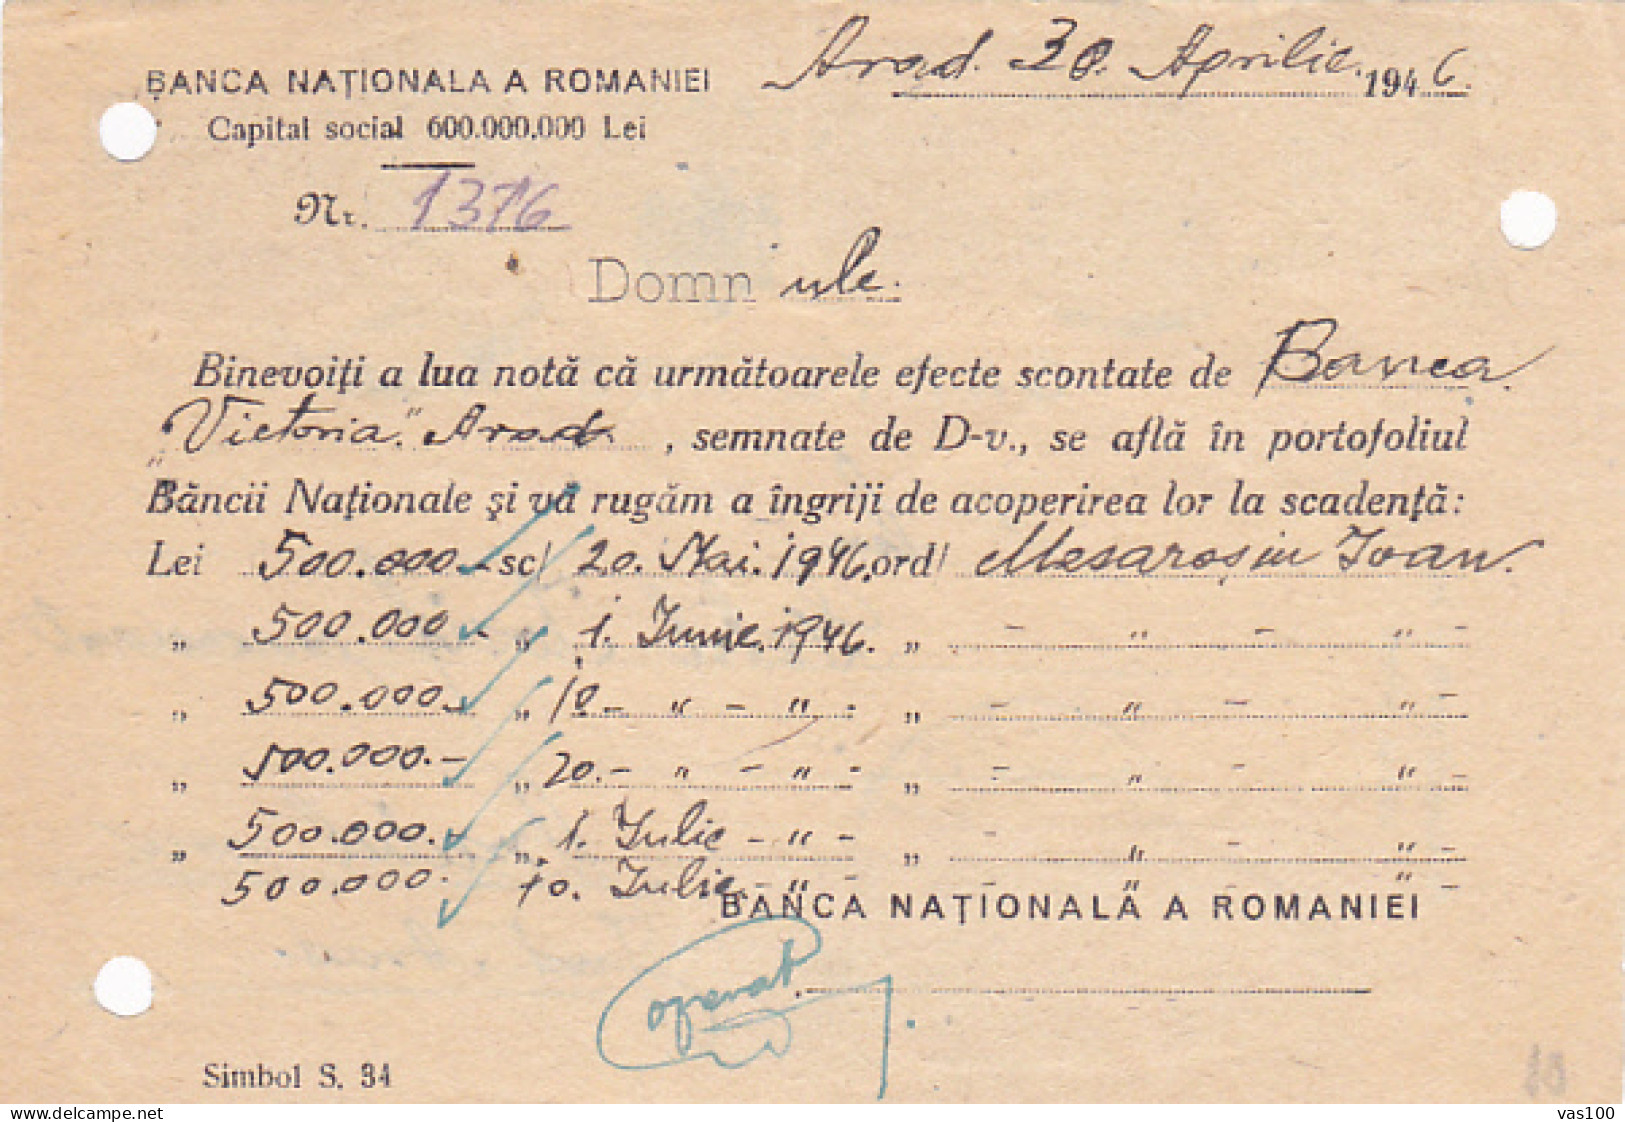 BANCA NAŢIONALA A ROMANIEI
Arad. 30. Aprilie. 1946.
Capital social 600.000.000 Lei
Nr. 1376
Domnule.
Binevoiţi a lua notă că următoarele efecte scontate de Banca
„Victoria." Arad. , semnate de D-v., se află în portofoliul
Băncii Naţionale şi vă rugăm a îngriji de acoperirea lor la scadenţă:
Lei 500.000 - sc/ 20. Mai. 1946. ord/ Mesaroşiu Ioan.
„ 500.000 - „ 1. Iunie. 1946. „ - " - " -
„ 500.000.- „ 10 - " - " - „ - " - " -
„ 500.000.- „ 20.- " - " - „ - " - " -
„ 500.000.- „ 1. Iulie - " - „ - " - " -
500.000.- 10. Iulie - " - - " - " -
BANCA NAŢIONALĂ A ROMANIEI
operat
Simbol S. 34
vas100